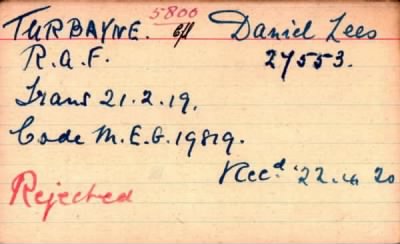 5800
TURBAYNE. Daniel Lees
R.A.F. 27553.
Trans 21.2.19.
Code M.E.G. 19819.
Recd. 22.4.20
Rejected